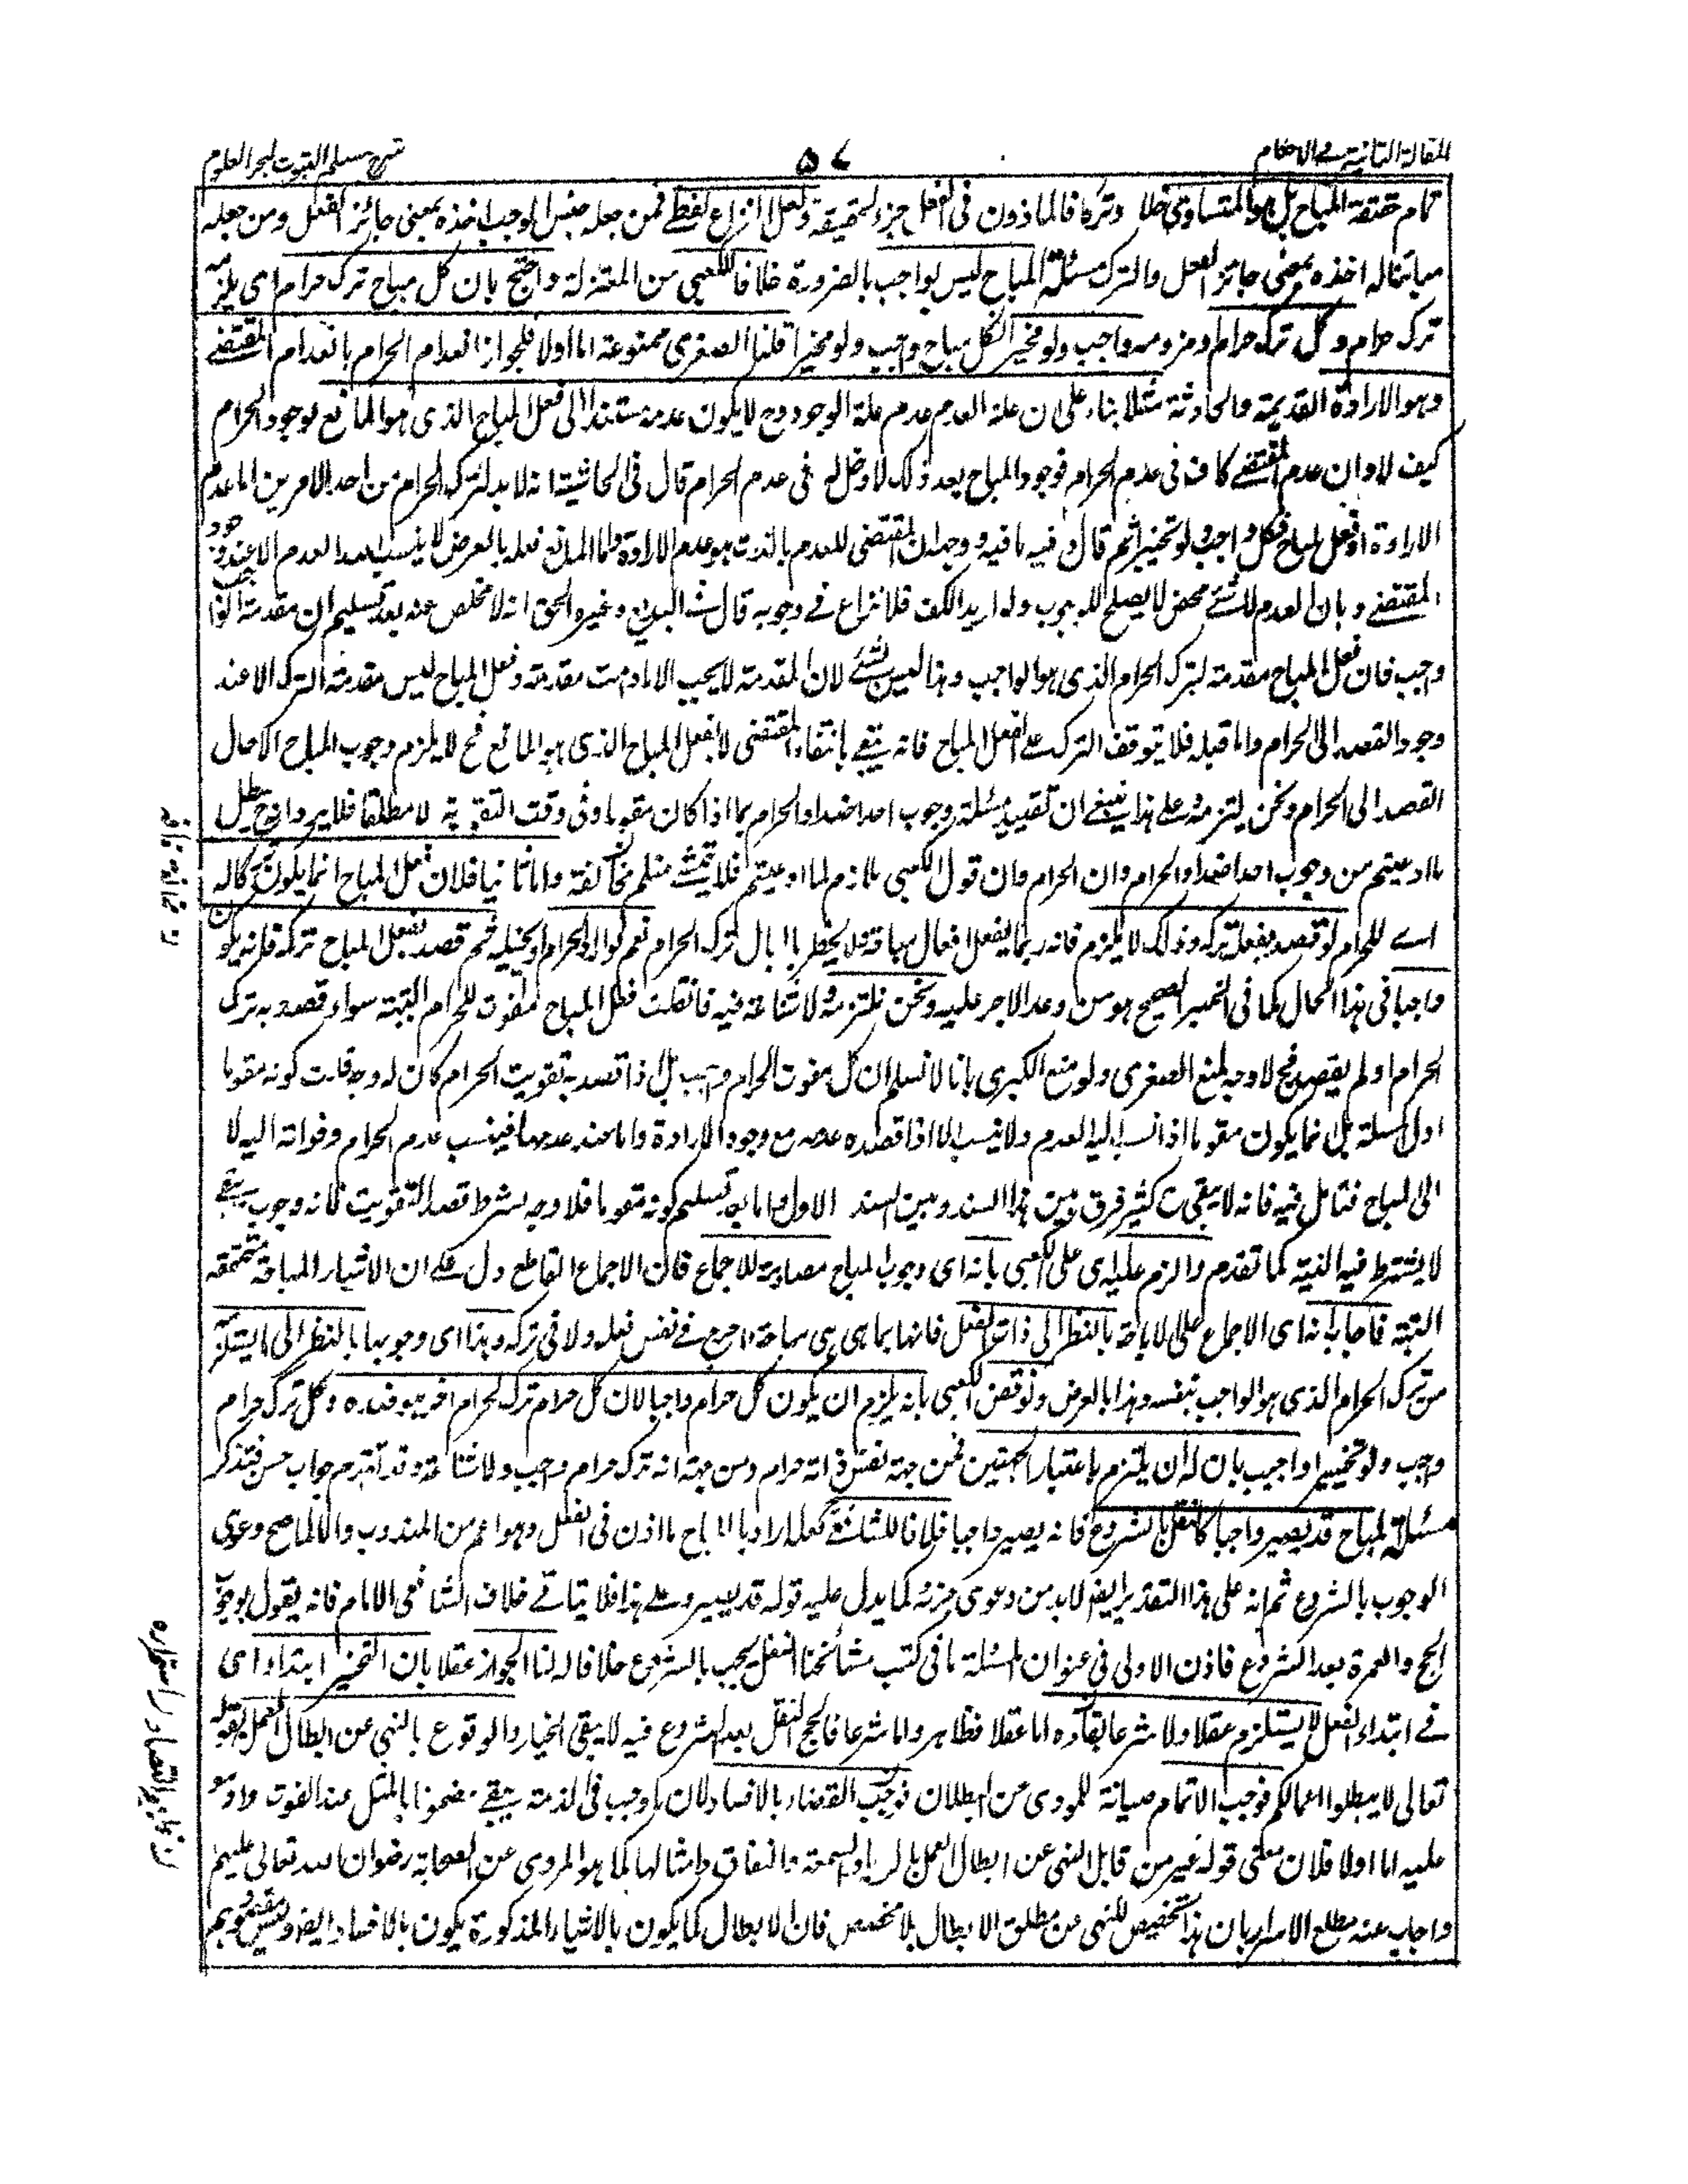 المقالة الثانية فى الاحكام
٥٧
شرح مسلم الثبوت لبحر العلوم
تمام حقيقة المباح بل هو المتساوى فعلا وتركا فالماذون فى الفعل جزء لحقيقة ولعل النزاع لفظے فمن جعله جنس الوجب اخذه بمعنى جائز الفعل ومن جعله
مبائناله اخذه بمعنى جائز الفعل والترك مسئلة المباح ليس بواجب بالضرورة خلافا للكعبى من المعتزلة واحتج بان كل مباح ترك حرام اى يلزمه
ترك حرام وكل ترك حرام وملزومه واجب ولو مخيرا فكل مباح واجب ولو مخيرا قلنا الصغرى ممنوعة اما اولا فلجواز انعدام الحرام بانعدام المقتضے
وهو الارادة القديمة والحادثة مثلا بناء على ان علة العدم عدم علة الوجود وح لا يكون عدمه مستندا الى فعل المباح الذى هو المانع لوجود الحرام
كيف لا وان عدم المقتضے كاف فى عدم الحرام فوجود المباح بعد ذلك لا دخل له فى عدم الحرام قال فى الحاشية انه لا بد لترك الحرام من احد الامرين اما عدم
الارادة او فعل المباح فكل واجب ولو تخييرا ثم قال وفيه ما فيه ووجه ان المقتضى للعدم بالذات هو عدم الارادة واما المانع فعله بالعرض لا ينسب اليه العدم الا عند وجود
المقتضے وبان العدم لا شئے محض لا يصلح للوجوب ولو اريد الكف فلا نزاع فے وجوبه قال شارح البديع وغيره الحق انه لا مخلص عنه بعد تسليم ان مقدمة الواجب
واجب فان فعل المباح مقدمة لترك الحرام الذى هو الواجب وهذا ليس بشئے لان المقدمة لا يجب الا ما دامت مقدمة وفعل المباح ليس مقدمة الترك الا عند
وجود القصد الى الحرام واما قبله فلا يتوقف الترك علے فعل المباح فانه ينتفے بانتفاء المقتضى لا بفعل المباح الذى هو المانع فح لا يلزم وجوب المباح الا حال
القصد الى الحرام ونحن يلتزمه علے هذا ينبغے ان تقييد مسئلة وجوب احد اضداد الحرام بما اذا كان مفوتا وفى وقت التفويت لا مطلقا فلا يرد انه ح بطل
ما ادعيتم من وجوب احد اضداد الحرام وان الحرام وان قول الكعبى ملازم لما ادعيتم فلا يتمشے منكم مخالفته واما ثانيا فلان فعل المباح انما يكون تركا له
اے للحرام لو قصد بفعله تركه وذلك لا يلزم فانه ربما يفعل افعال مباحة ولا يخطر بالبال ترك الحرام نعم لو اراد الحرام او تخيله ثم قصد بفعل المباح تركه فانه يكون
واجبا فى هذا الحال كما فى الخبر الصحيح هو من وعد الاجر عليه ونحن نلتزمه ولا شناعة فيه فان قلت فعل المباح مفوت للحرام البتة سواء قصد به ترك
الحرام او لم يقصد فح لا وجه لمنع الصغرى ولو منع الكبرى بانا لا نسلم ان كل مفوت الحرام واجب بل اذا قصد به تفويت الحرام كان له وجه قلت كونه مفوتا
اول المسئلة بل انما يكون مفوتا اذا نسب اليه العدم ولا ينسب الا اذا قصد عدمه مع وجود الارادة واما عند عدمها فينسب عدم الحرام وفواته اليه لا
الى المباح فتامل فيه فانه لا يبقى ح كثير فرق بين هذا السند وبين السند الاول واما بعد تسليم كونه مفوتا فلا وجه بشرط قصد التفويت فانه وجوب تبعے
لا يشترط فيه النية كما تقدم والزم عليه اى على الكعبى بانه اى وجوب المباح مصادمة للاجماع فان الاجماع القاطع دل علے ان الاشياء المباحة متحققه
البتة فاجاب بانه اى الاجماع على الاباحة بالنظر الى ذات الفعل فانها بما هى هى مباحة لا حرج فے نفس فعله ولا فى تركه وهذا اى وجوبها بالنظر الى ما يستلزمه
من ترك الحرام الذى هو الواجب بنفسه وهذا بالعرض ونوقض الكعبى بانه يلزم ان يكون كل حرام واجبا لان كل حرام ترك لحرام اخر هو ضده وكل ترك حرام
واجب ولو تخييرا واجيب بان له ان يلتزم باعتبار الجهتين فمن جهة نفس ذاته حرام ومن جهة انه ترك حرام واجب ولا شناعة وقد تقدم جواب حسن فتذكر
مسئلة المباح قد يصير واجبا كالنفل بالشروع فانه يصير واجبا خلافا للشافعے لعله اراد بالمباح ما اذن فى الفعل وهو اعم من المندوب والا لما صح دعوى
الوجوب بالشروع ثم انه على هذا التقدير ايضا لا بد من دعوى جزئه كما يدل عليه قوله قد يصير وعلے هذا فلا يتاتے خلاف الشافعى الامام فانه يقول بوجوب
الحج والعمرة بعد الشروع فاذن الاولى فى عنوان المسئلة ما فى كتب مشائخنا النفل يجب بالشروع خلافا له لنا الجواز عقلا بان التخيير ابتداء اى
فے ابتداء الفعل لا يستلزم عقلا ولا شرعا بقاءه اما عقلا فظاهر واما شرعا فالحج النفل بعد الشروع فيه لا يبقى الخيار والوقوع بالنهى عن ابطال العمل بقوله
تعالى لا تبطلوا اعمالكم فوجب الاتمام صيانة للمودى عن البطلان فوجب القضاء بالافساد لان ما وجب فى الذمة يبقے مضمونا بالمثل عند الفوت واورد
عليه اما اولا فلان معنى قوله عز من قائل النهى عن ابطال العمل بالرياء والسمعة والنفاق وامثالها كما هو المروى عن الصحابة رضوان الله تعالى عليهم
واجاب عنه مطلع الاسرار بان هذا تخصيص للنهى عن مطلق الابطال بلا مخصص فان الابطال كما يكون بالاشياء المذكورة يكون بالافساد ايضا وليس مقصودهم